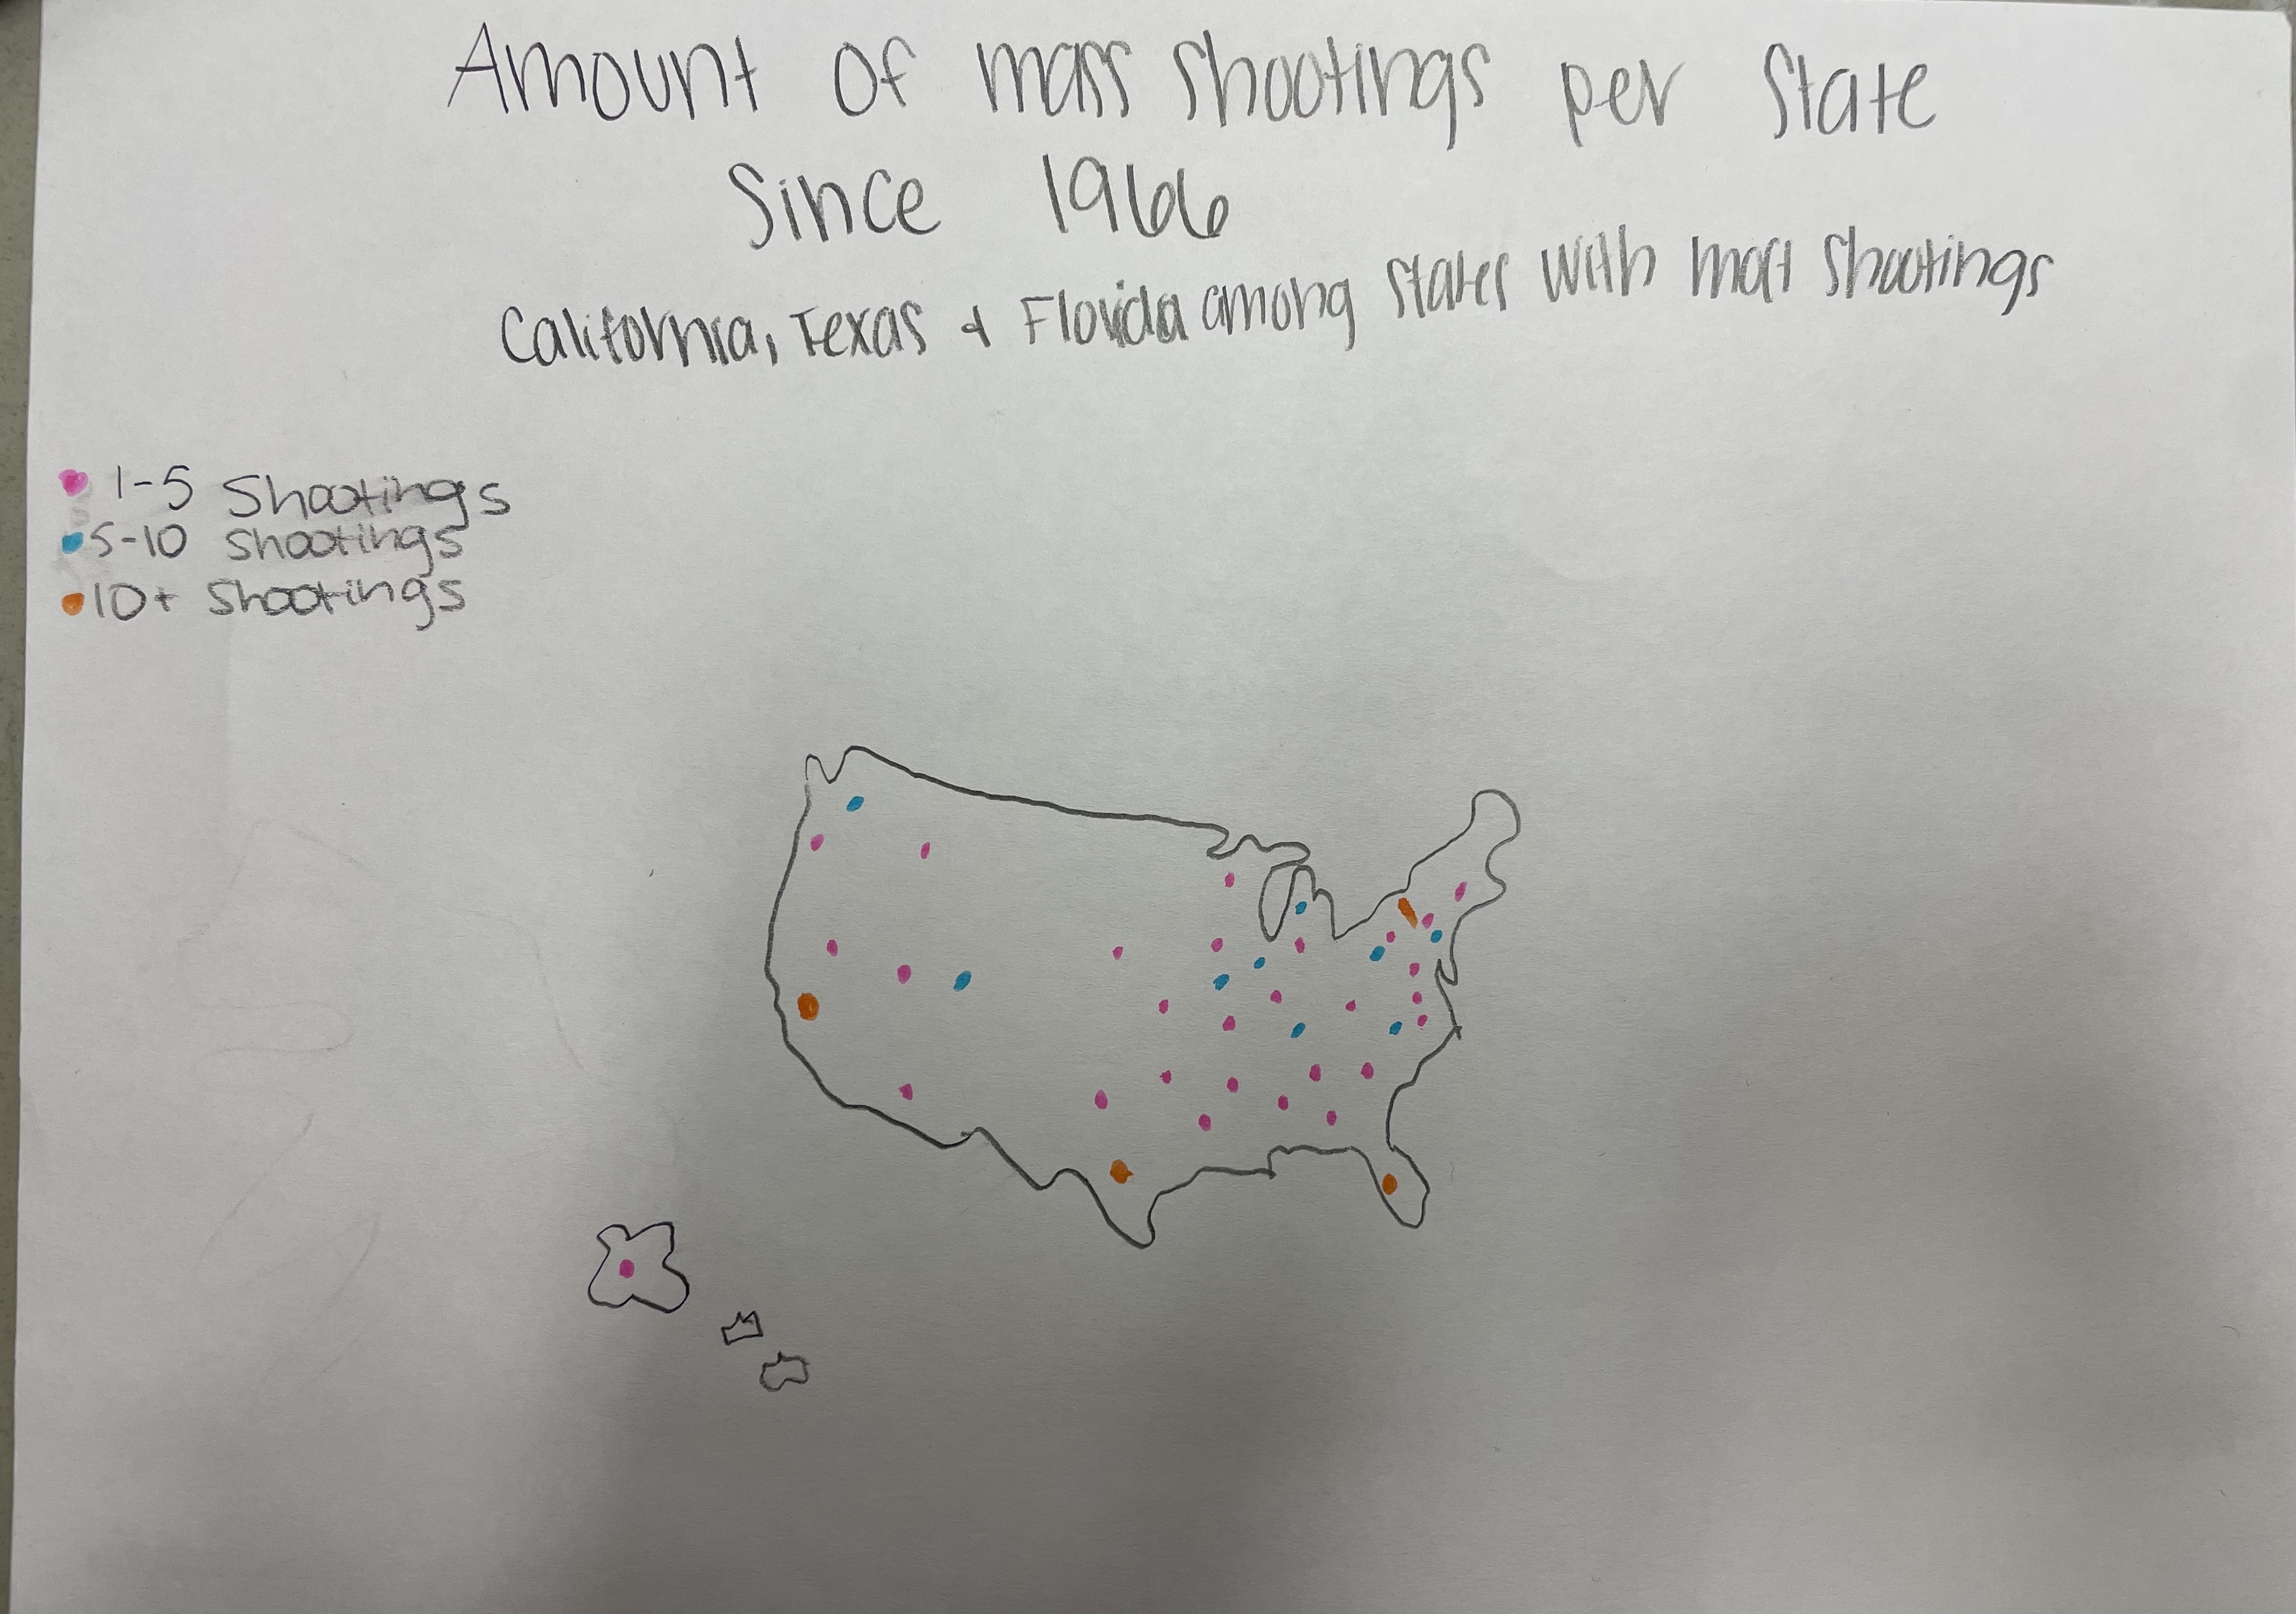 Amount of mass shootings per state
Since 1966
California, Texas & Florida among states with most shootings
1-5 Shootings
5-10 shootings
10+ Shootings